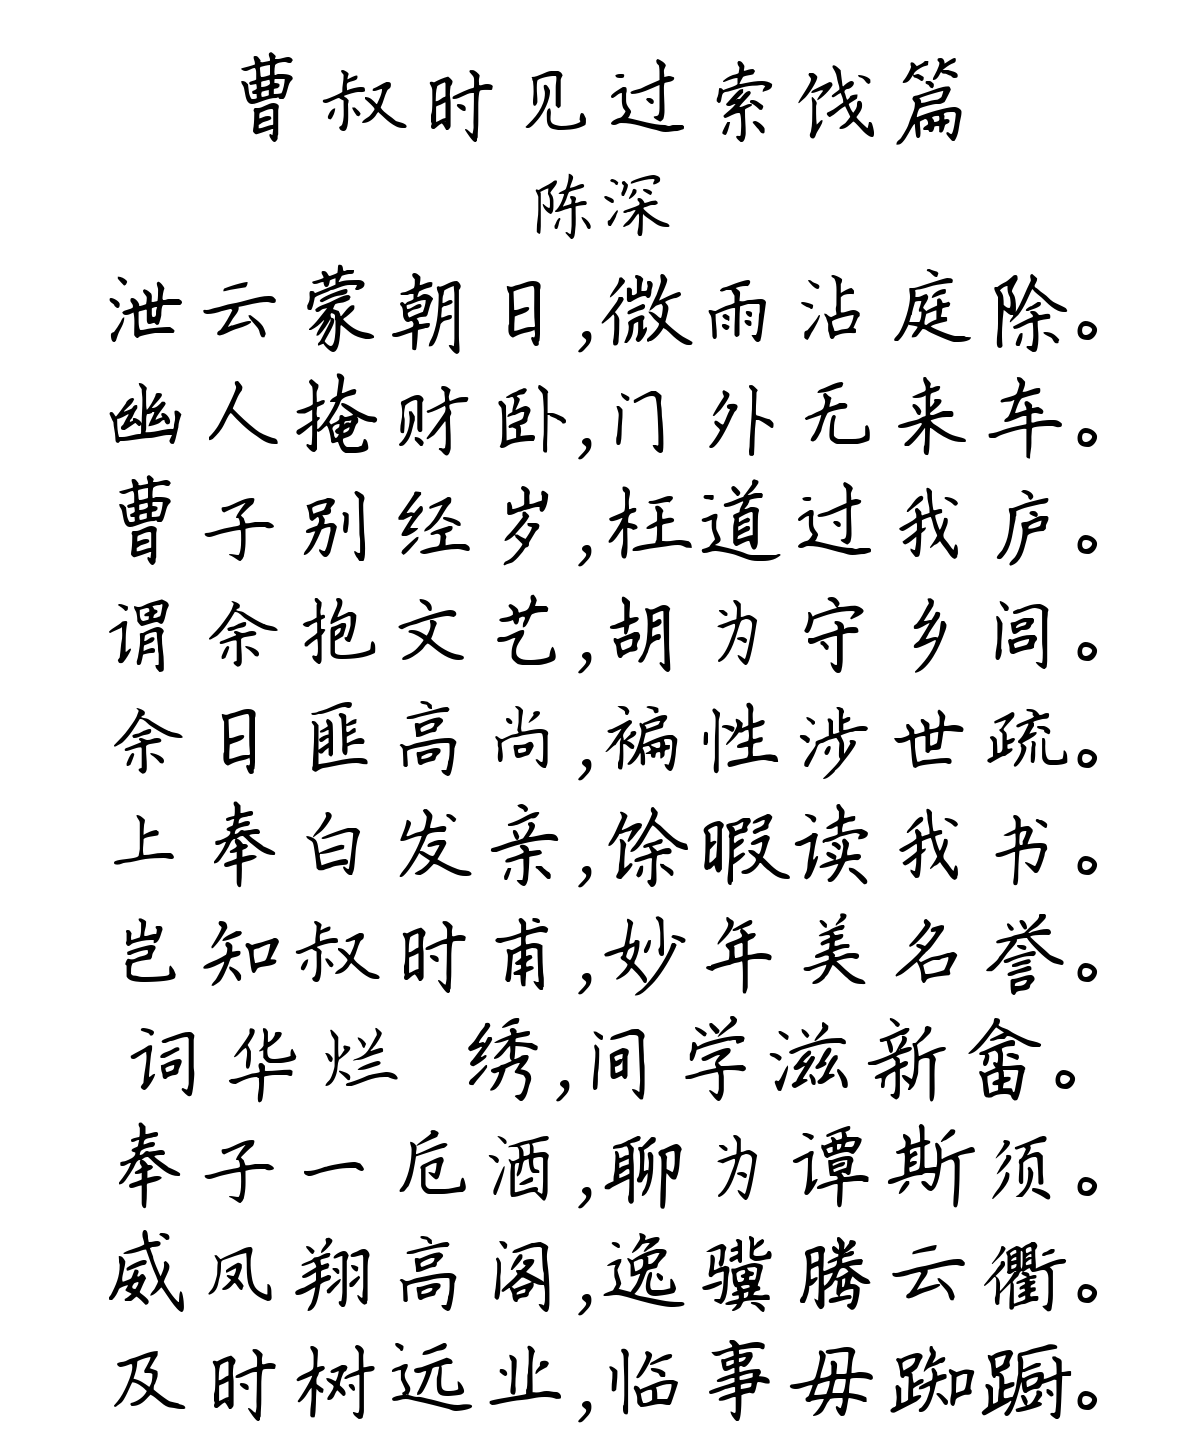 曹叔时见过索饯篇
陈深
泄云蒙朝日,微雨沾庭除。
幽人掩财卧,门外无来车。
曹子别经岁,枉道过我庐。
谓余抱文艺,胡为守乡闾。
余日匪高尚,褊性涉世疏。
上奉白发亲,馀暇读我书。
岂知叔时甫,妙年美名誉。
词华烂 绣,间学滋新畬。
奉子一卮酒,聊为谭斯须。
威凤翔高阁,逸骥腾云衢。
及时树远业,临事毋踟蹰。